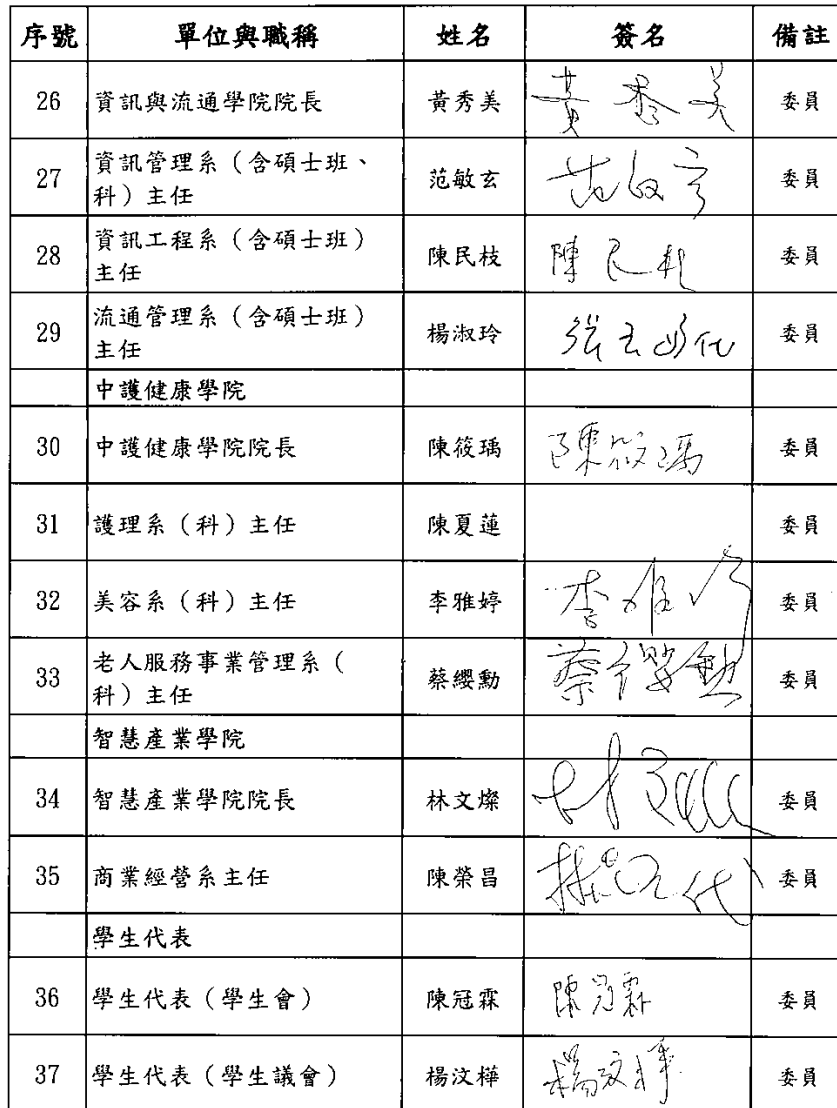 序號 單位與職稱 姓名 簽名 備註
26 資訊與流通學院院長 黃秀美 黃秀美 委員
資訊管理系（含碩士班、
27 范敏玄 范敏玄 委員
科）主任
資訊工程系（含碩士班）
28 陳民枝 陳民枝 委員
主任
流通管理系（含碩士班）
29 楊淑玲 委員
主任
中護健康學院
30 中護健康學院院長 陳筱瑀 陳筱瑀 委員
31 護理系（科）主任 陳夏蓮 委員
32 美容系（科）主任 李雅婷 李雅婷 委員
老人服務事業管理系（
33 蔡纓勳 蔡纓勳 委員
科）主任
智慧產業學院
34 智慧產業學院院長 林文燦 林文燦 委員
35 商業經營系主任 陳榮昌 委員
學生代表
36 學生代表（學生會） 陳冠霖 陳冠霖 委員
37 學生代表（學生議會） 楊汶樺 楊汶樺 委員